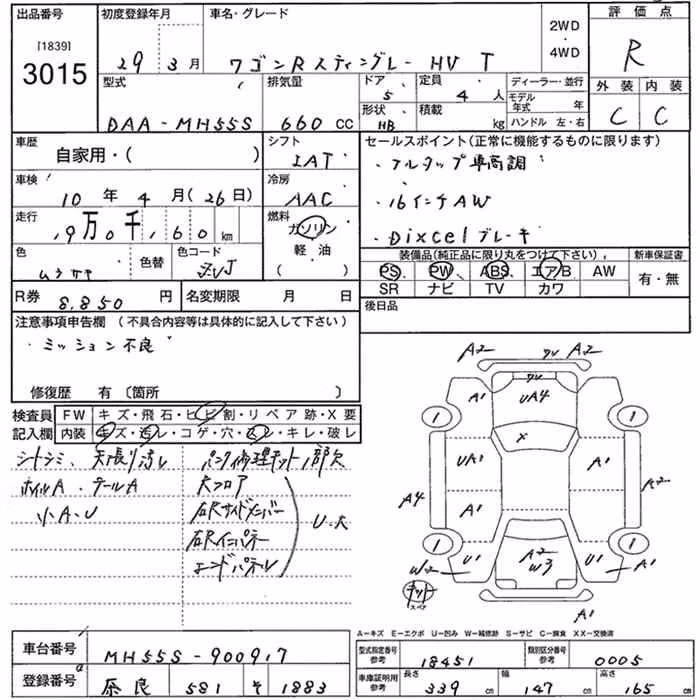 出品番号
[1839]
3015
初度登録年月
29 3月
車名・グレード
ワゴンRスティングレー HV T
2WD
・
4WD
評価点
R
外装 内装
C C
型式
DAA-MH55S
排気量
660 cc
ドア
5
定員
4 人
形状
HB
積載
kg
ディーラー・並行
モデル年式 年
ハンドル 左・右
車歴
自家用・( )
シフト
IAT
車検
10年 4月(26日)
冷房
AAC
走行
9万0千160 km
燃料
ガソリン
軽油
( )
色
ムラサキ
色替
色コード
ZVJ
R券 8,850 円
名変期限 月 日
セールスポイント(正常に機能するものに限ります)
・フルタップ車高調
・16インチAW
・Dixcelブレーキ
装備品(純正品に限り丸をつけて下さい)
PS PW ABS エアB AW
SR ナビ TV カワ
新車保証書
有・無
後日品
注意事項申告欄 (不具合内容等は具体的に記入して下さい)
・ミッション不良
修復歴 有〔箇所 〕
検査員記入欄
FW キズ・飛石・ヒビ割・リペア跡・X要
内装 キズ・汚レ・コゲ・穴・スレ・キレ・破レ
シートシミ、天張り汚れ
パンク修理キット1部欠
ホイルA・テールA
小A・U
右Rサイドメンバー
右Rインパネ
エンドパネル
U・大
A2 A2
A1 UA4
1 1
X
UA1 A1
A4 A2
A1
1 1
W2 U1 A2 W3 U1 A1
キット
スペア
A1
A-キズ E-エクボ U-凹み W-補修跡 S-サビ C-腐食 XX-交換済
車台番号
MH55S-900917
登録番号
奈良 581 そ 1883
型式指定番号 参考
18451
類別区分番号 参考
0005
車庫証明用 参考
長さ 339 cm
幅 147 cm
高さ 165 cm